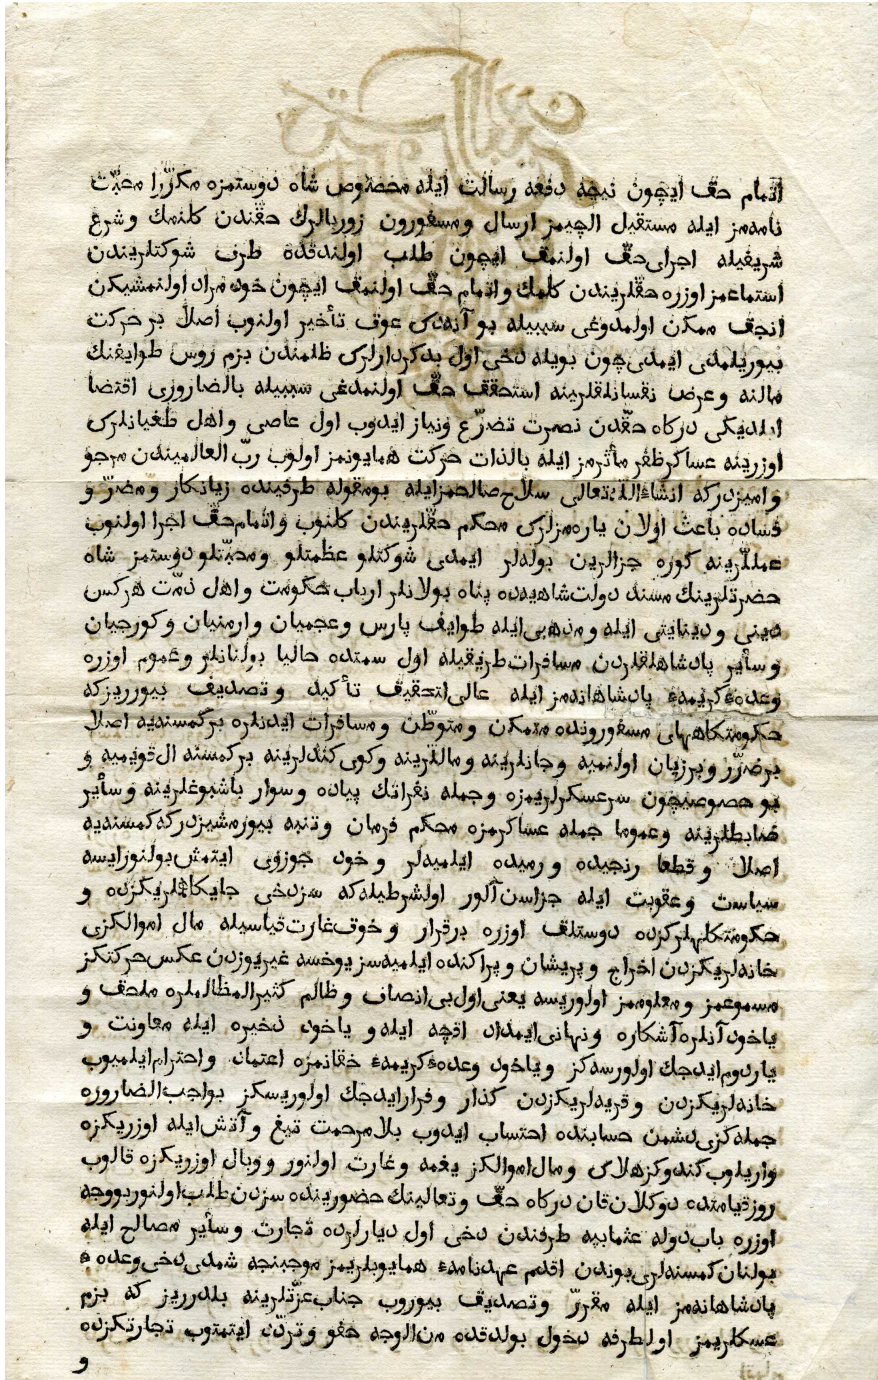 اتمام حق ایچون نیچه دفعه رسالت ایله مخصوص شاه دوستمزه مکرّرا محبّت
نامه‌مز ایله مستقیل الچیمز ارسال ومسفورون زوربالرك حقندن کلنمك وشرع
شریفیله اجرای حقّ اولنمق ایچون طلب اولندقده طرف شوکتلریندن
استماعمز اوزره حقلریندن کلمك واتمام حقّ اولنمق ایچون خود مراد اولنمشیکن
انجق ممکن اولمدوغی سببیله بو آنه‌دك عوق تأخیر اولنوب أصلا بر حرکت
بیوریلمدی ایمدی چون بویله دخی اول بدکردارلرك ظلمندن بزم روس طوایفنك
مالنه وعرض نقسانلقلرینه استحقق حقّ اولنمدغی سببیله بالضاروزی اقتضا
ایلدیکی درکاه حقّدن نصرت تضرّع ونیاز ایدوب اول عاصی واهل طغیانلرك
اوزرینه عساکر ظفر مأثرمز ایله بالذات حرکت همایونمز اولوب ربّ العالمیندن مرجو
وامیزدرکه انشاءالله تعالی سلاح صالحمزایله بومقوله طرفینده زیانکار ومضرّ و
فساده باعث اولان یاره‌مزلرك محکم حقّلریندن کلنوب واتمام حقّ اجرا اولنوب
عمللرینه کوره جزالرین بوله‌لر ایمدی شوکتلو عظمتلو ومحبّتلو دوستمز شاه
حضرتلرینك مسند دولت شاهیه‌ده پناه بولانلر ارباب حکومت واهل ذمّت هرکس
دینی ودینایتی ایله ومذهبی ایله طوایف پارس وعجمیان وارمنیان وکورجیان
وسأیر پادشاهلقلردن مسافرات طریقیله اول سمتده حالیا بولنانلر وعموم اوزره
وعدهٔ کریمهٔ پادشاهانه‌مز ایله عالی التحقیق تأکید وتصدیف بیورریزکه
حکومتکاههای مسفورونده متمکن ومتوطّن ومسافرات ایدنلره برکمسنه‌یه اصلا
برضرّر وبرزیان اولنمیه وجانلرینه ومالّلرینه وکوی کندلرینه برکمسنه ال قویمیه و
بو خصوصیچون سرعسکرلریمزه وجمله نفراتك پیاده وسوار باشبوغلرینه وسأیر
ضابطلرینه وعموما جمله عساکرمزه محکم فرمان وتنبه بیورمشیزدرکه کمسنه‌یه
اصلا وقطعا رنجیده ورمیده ایلمیه‌لر وخود جوزوی ایتمش بولنورایسه
سیاست وعقوبت ایله جزاسن آلور اولشرطیله‌که سزدخی جایکاهلریکزده و
حکومتکلهلرکزده دوستلق اوزره برقرار وخوف غارت قیاسیله مال اموالکزی
خانه‌لریکزدن اخراج وپریشان وپراکنده ایلمیه‌سز یوخسه غیریوزدن عکس حرکتکز
مسموعمز ومعلوممز اولوریسه یعنی اول بی انصاف وظالم کثیرالمظالملره ملحق و
یاخود آنلره آشکاره ونهانی ایمداد اقچه ایله و یاخود ذخیره ایله معاونت و
یاردوم ایدجك اولورسه‌کز ویاخود وعدهٔ کریمهٔ خقانمزه اعتماد واحترام ایلمیوب
خانه‌لریکزدن وقریه‌لریکزدن کذار وفرارایدجك اولوریسکز بواجب الضاروره
جمله‌کزی دشمن حسابنده احتساب ایدوب بلا مرحمت تیغ وآتش ایله اوزریکزه
واریلوب کندوکز هلاك ومال اموالکز یغمه وغارت اولنور ووبال اوزریکزه قالوب
روز قیامتده دوکلان قان درکاه حقّ وتعالینك حضورینده سزدن طلب اولنور بووجه
اوزره باب دوله عثمانیه طرفندن دخی اول دیارلرده تجارت وسأیر مصالح ایله
بولنان کمسنه‌لری بوندن اقدم عهدنامهٔ همایوبلریمز موجبینجه شمدی دخی وعدهٔ
پادشاهانه‌مز ایله مقررّ وتصدیف بیوروب جناب عزّتلرینه بلدرریز که بزم
عسکلریمز اولطرفه دخول بولدقده من الوجه خفو وتردّد ایتمتوب تجارتکزده
و